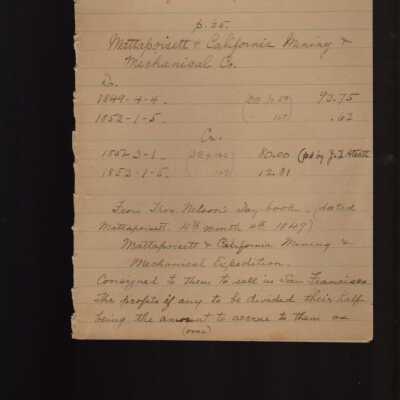 p. 25.
Mattapoisett & California Mining &
Mechanical Co.
Dr.
1849-4-4. 93.75
1852-1-5. .62
Cr.
1852-3-1. 80.00 (pd by
1852-1-5. 12.81
From Thos. Nelson's Day book. (dated
Mattapoisett 4th month 4th 1849)
Mattapoisett & California Mining &
Mechanical Expedition.
Consigned to them to sell in San Francisco
The profits if any to be divided their half
being the amount to accrue to them as
(ours)